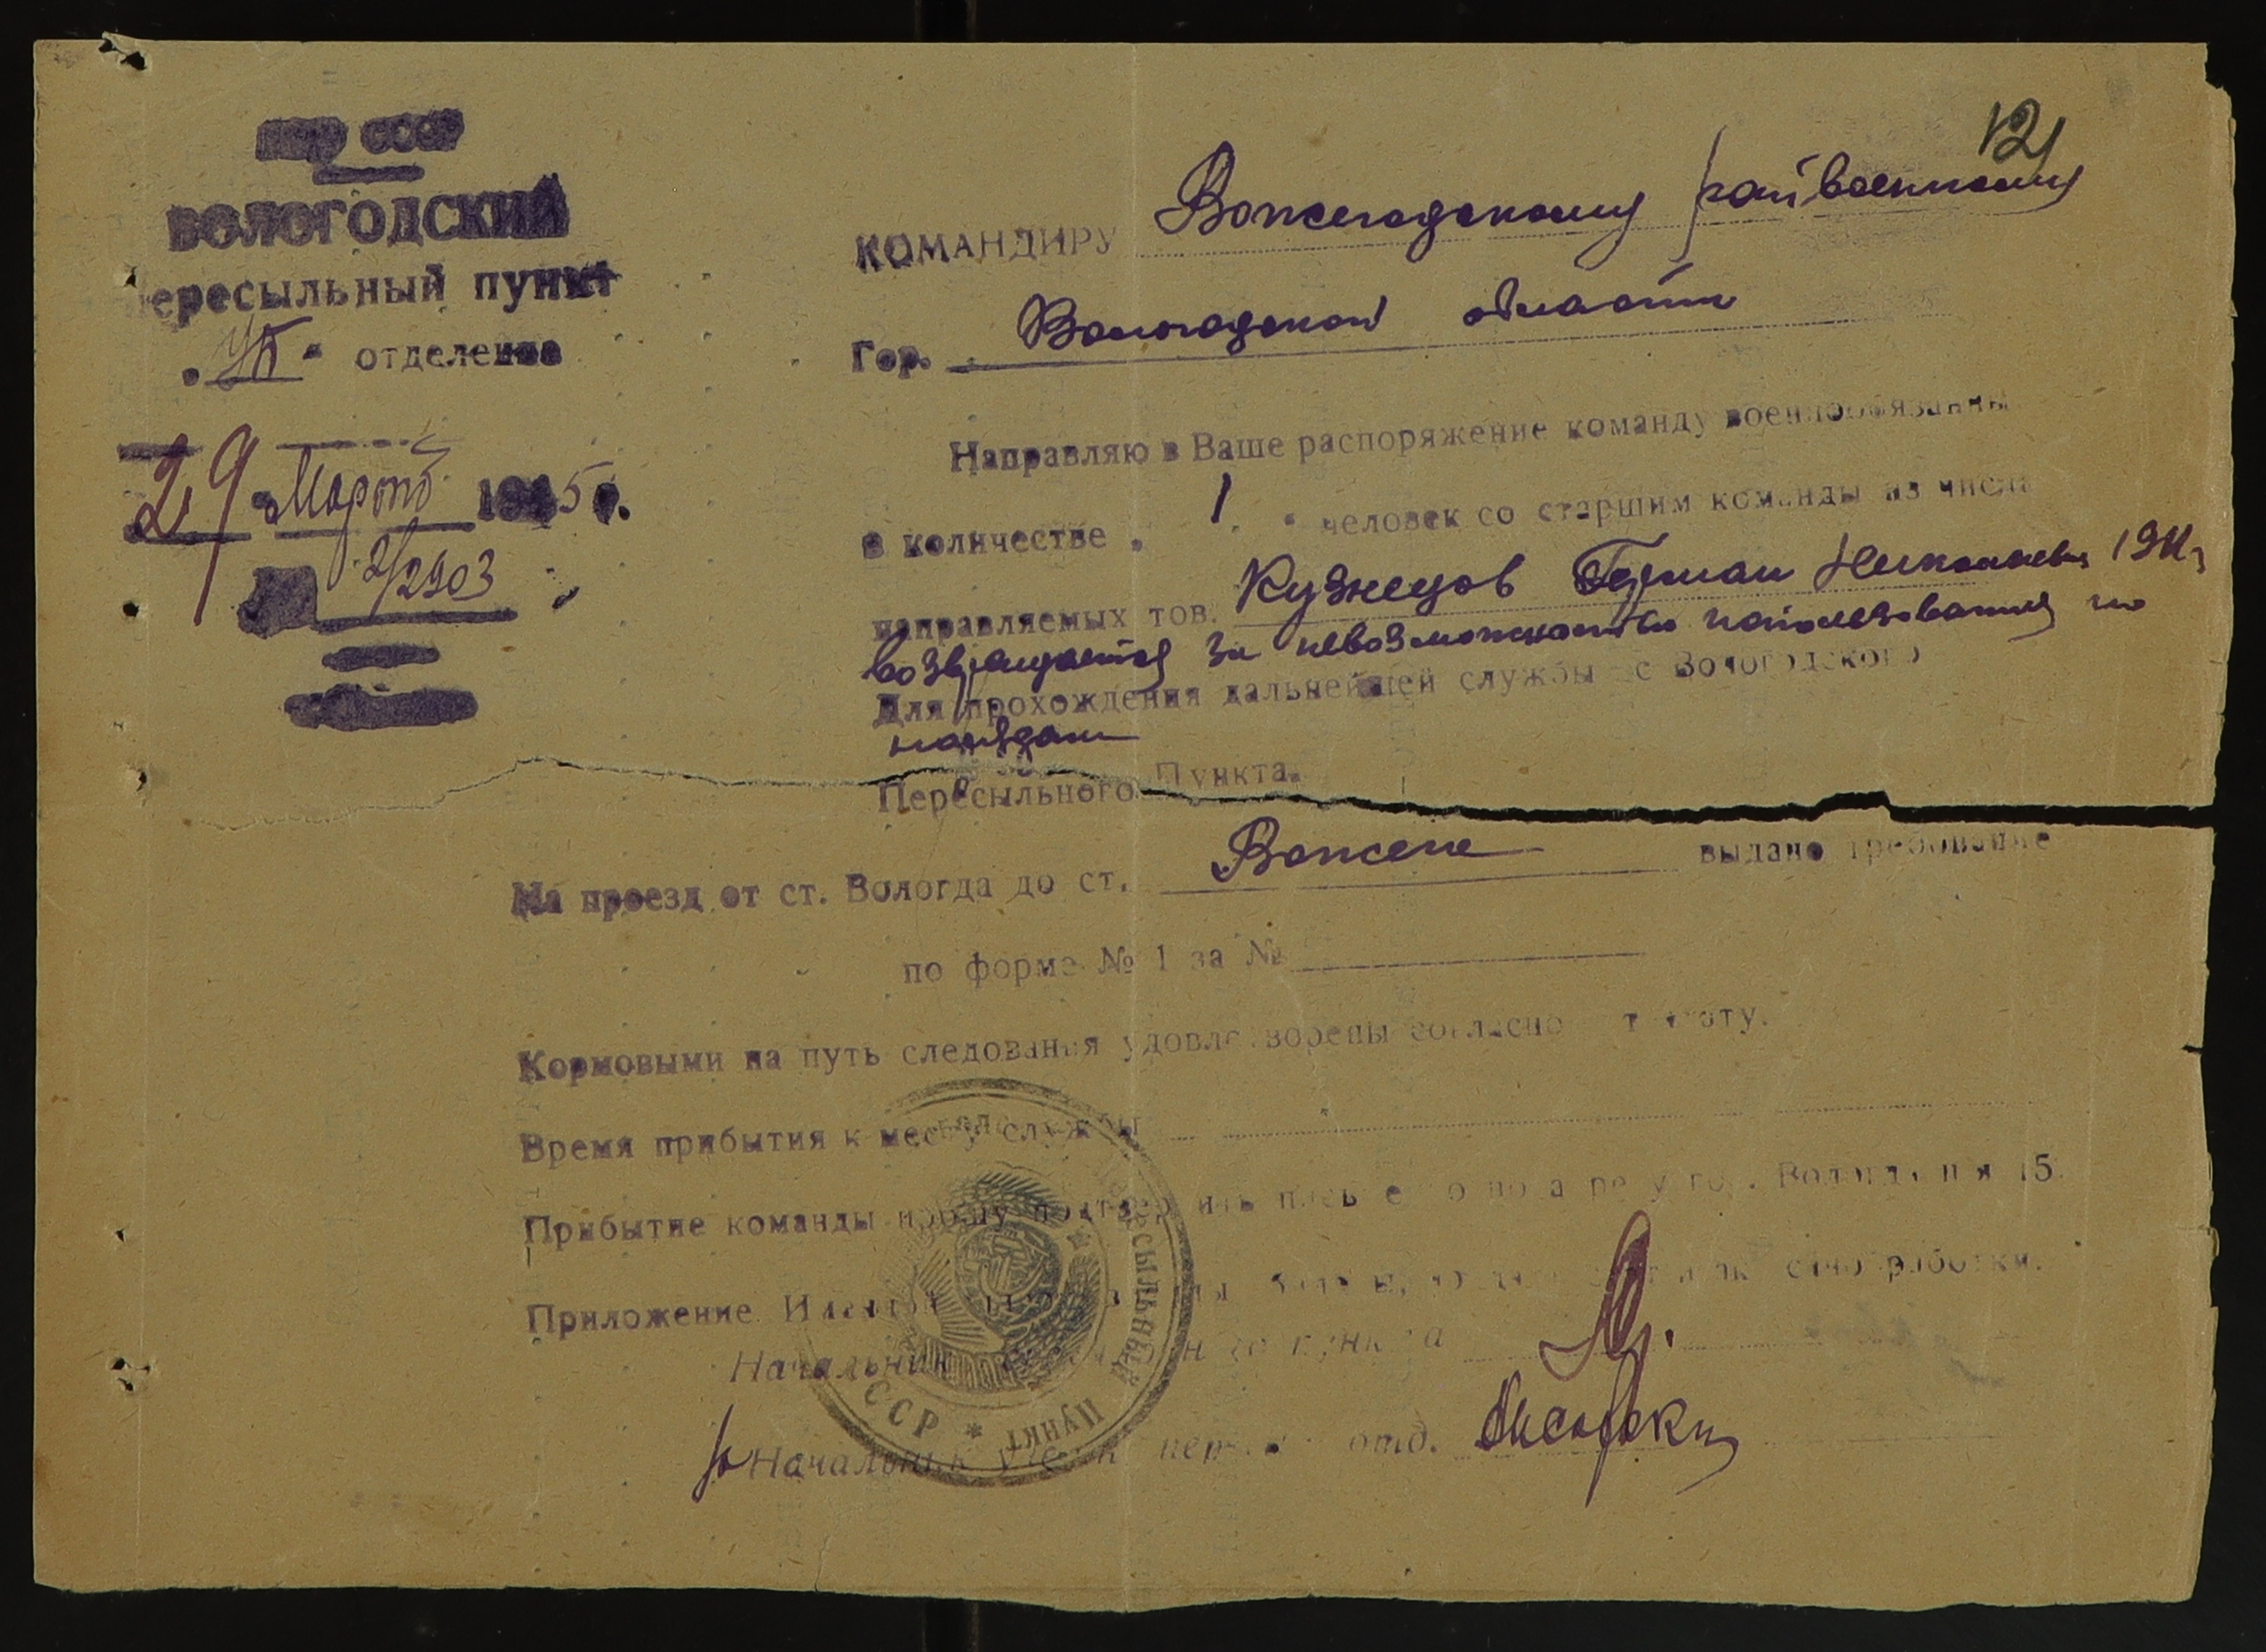 12
НКО СССР
ВОЛОГОДСКИЙ
пересыльный пункт
отделение
29 Марта 1945 г.
2/2903
КОМАНДИРУ Вожегодскому райвоенкому
Гор. Вологодской области
Направляю в Ваше распоряжение команду военнообязанных
в количестве 1 человек со старшим команды из числа
направляемых тов. Кузнецов Герман Николаевич
возвращается за невозможностью использования по
Для прохождения дальнейшей службы с Вологодского
нарядам
Пересыльного Пункта.
На проезд от ст. Вологда до ст. Вожега выдано требование
по форме № 1 за №
Кормовыми на путь следования удовлетворены согласно
Время прибытия к месту службы
Прибытие команды прошу подтвердить Вологда п я 15.
Приложение. санобработки.
Начальник пункта
Начальник отд.
Пересыльный Пункт * СССР *